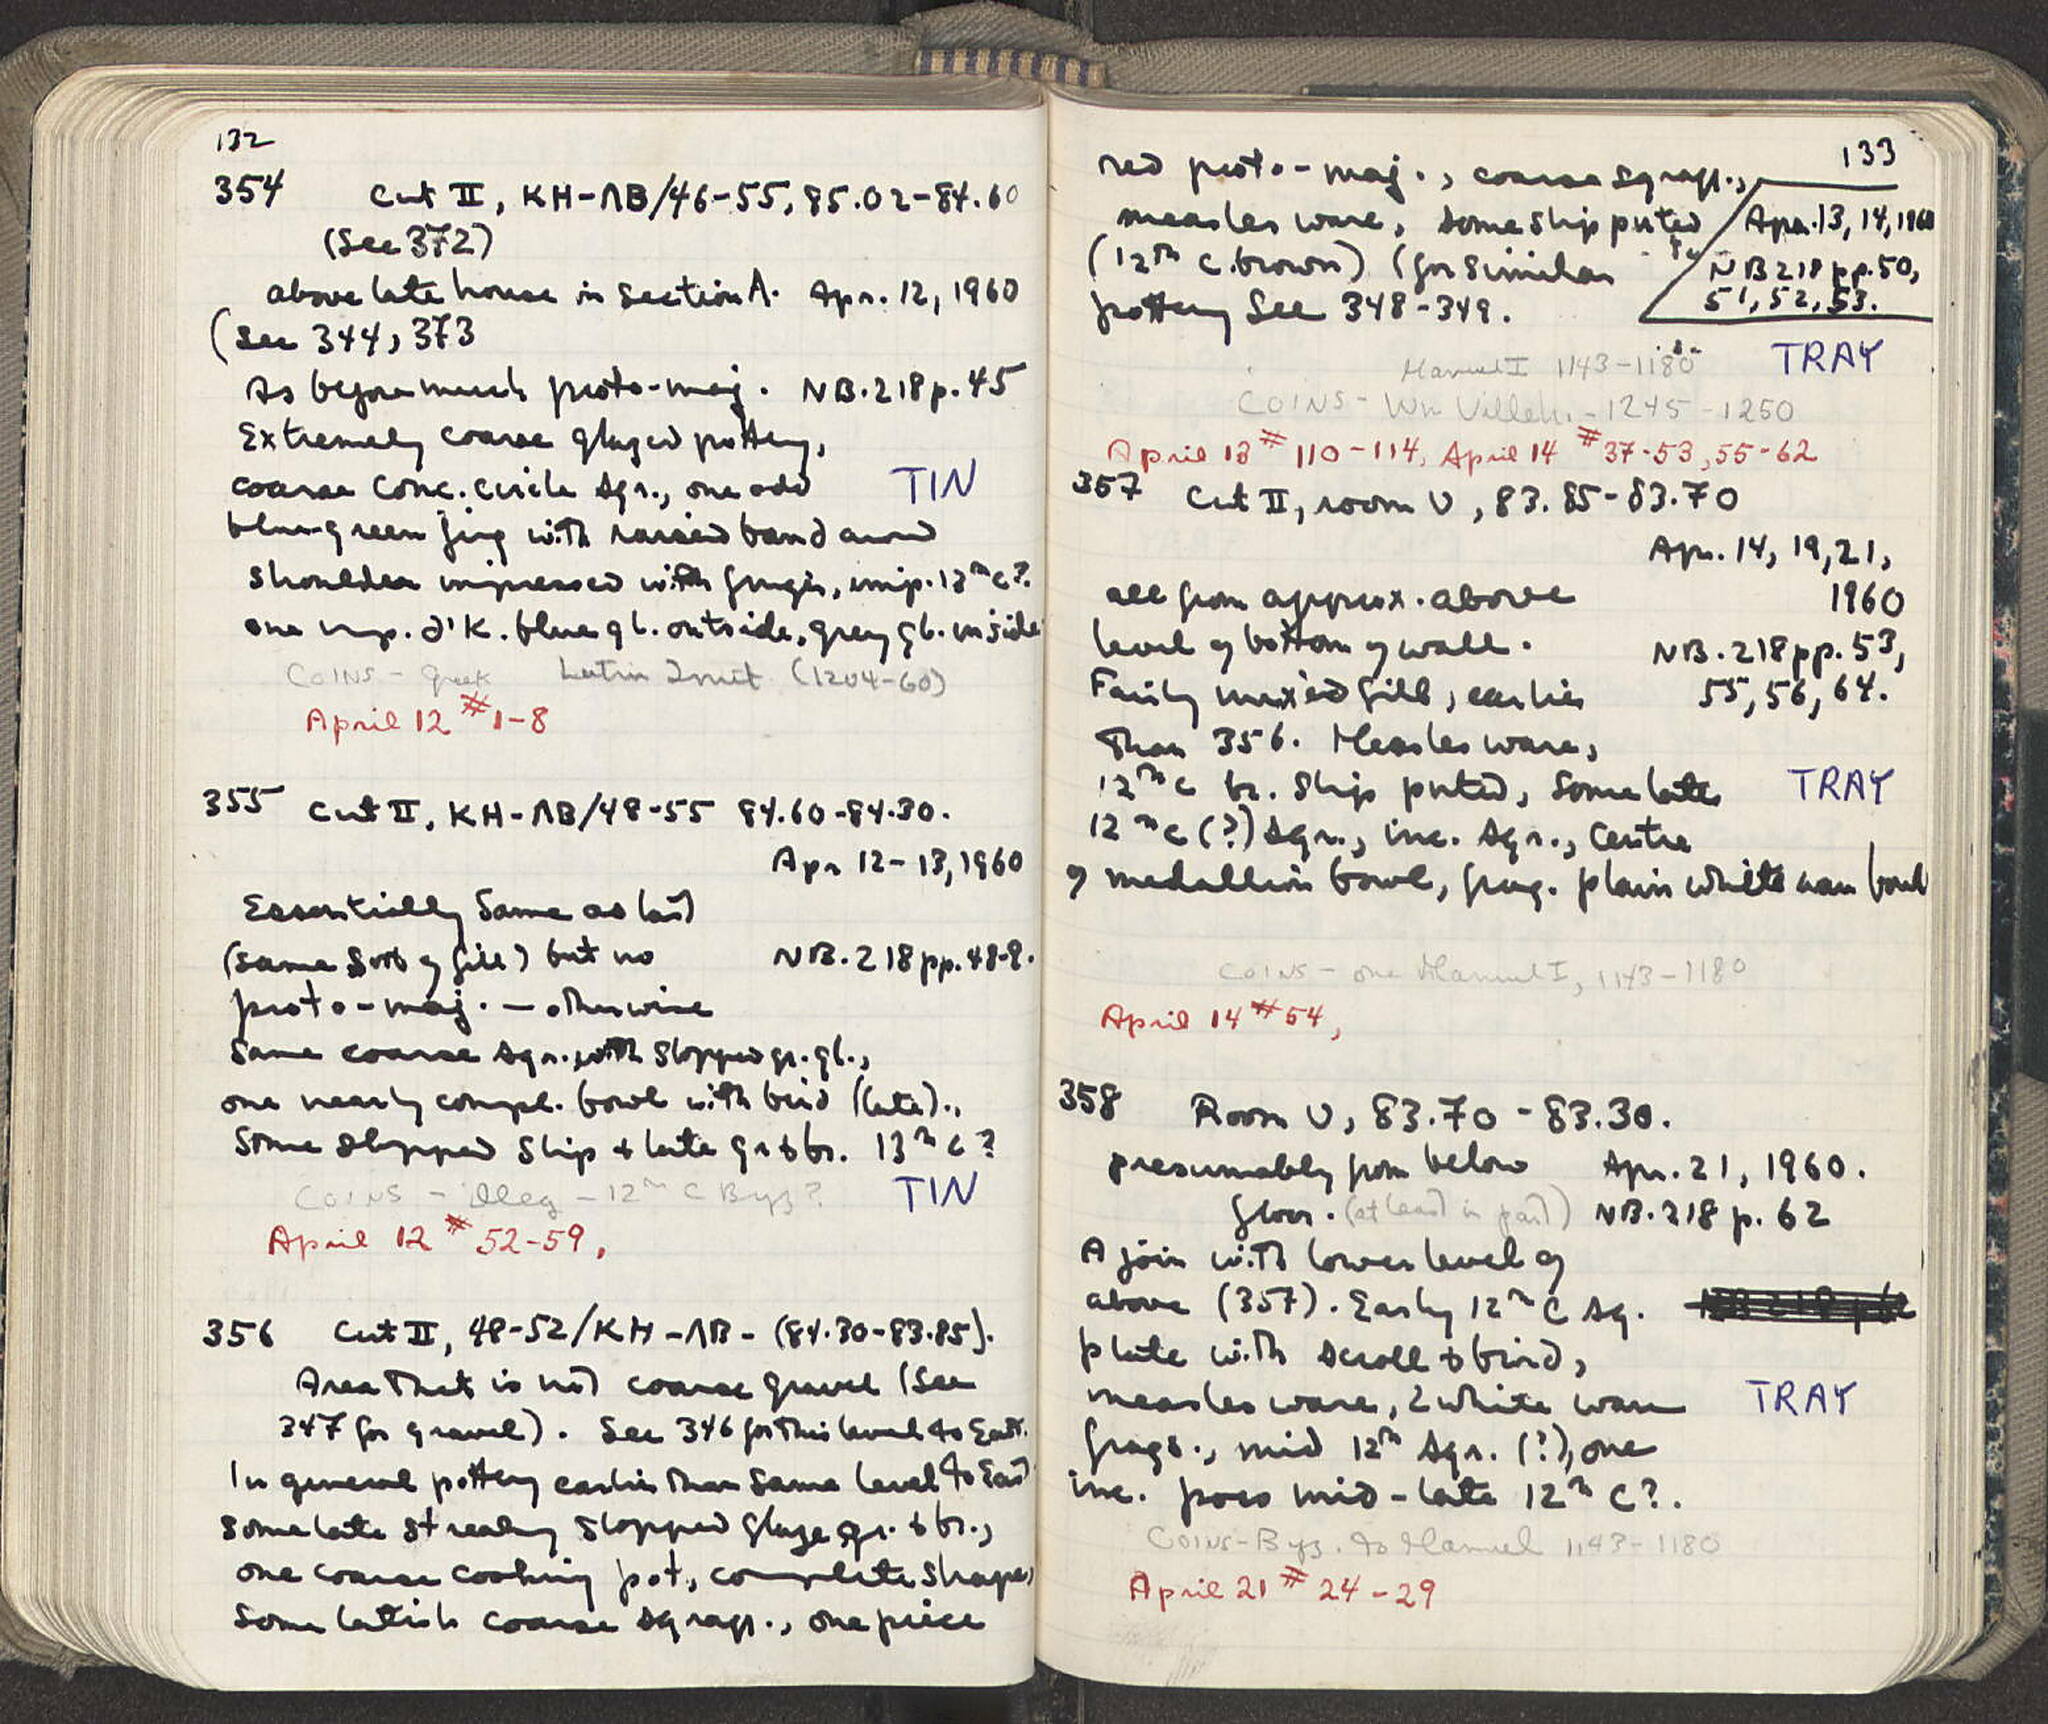 132
354 Cut II, KH-ΛB/46-55, 85.02-84.60
(See 372)
above late house in section A. Apr. 12, 1960
(See 344, 373
As before much proto-maj. NB.218 p.45
Extremely coarse glazed pottery,
coarse conc. circle sgr., one odd TIN
blue-green frag with raised band around
shoulder impressed with finger, imp. 13th c?.
one imp. d'k. blue gl. outside, grey gl. inside
COINS - Greek Latin Imit. (1204-60)
April 12 #1-8
355 Cut II, KH-ΛB/48-55 84.60-84.30.
Apr 12-13, 1960
Essentially same as last
(same sort of fill) but no NB.218 pp.48-9.
proto-maj. — otherwise
same coarse sgr. with slopped gr. gl.,
one nearly compl. bowl with bird (late).,
Some slopped slip + late gr & br. 13th c?
COINS - illeg - 12th C Byz? TIN
April 12 #52-59,
356 Cut II, 48-52/KH-ΛB- (84.30-83.85).
Area that is not coarse gravel (See
347 for gravel). See 346 for this level to East.
In general pottery earlier than same level to East
some late streaky slopped glaze gr. & br.,
one coarse cooking pot, complete shape,
some latish coarse sgraff., one piece
133
red proto-maj., coarse sgraff.,
measles ware, some slip pnted Apr. 13, 14, 1960
(12th c. brown) (for similar NB 218 pp.50,
pottery See 348-349. 51, 52, 53.
Manuel I 1143-1180 TRAY
COINS - Wm Villeh. - 1245-1250
April 13 #110-114, April 14 #37-53, 55-62
357 Cut II, room U, 83.85-83.70
Apr. 14, 19, 21,
all from approx. above 1960
level of bottom of wall. NB.218 pp.53,
Fairly mixed fill, earlier 55, 56, 64.
than 356. Measles ware,
12th c br. slip pnted, some late TRAY
12th c (?) sgr., inc. sgr., centre
of medallion bowl, frag. plain white ware bowl
COINS - one Manuel I, 1143-1180
April 14 #54,
358 Room U, 83.70-83.30.
presumably from below Apr. 21, 1960.
floor. (at least in part) NB.218 p. 62
A join with lower level of
above (357). Early 12th C sg. NB 218 p 62
plate with scroll & bird,
measles ware, 2 white ware TRAY
frags., mid 12th sgr. (?), one
inc. poss mid-late 12th C?.
COINS-Byz. to Manuel 1143-1180
April 21 #24-29